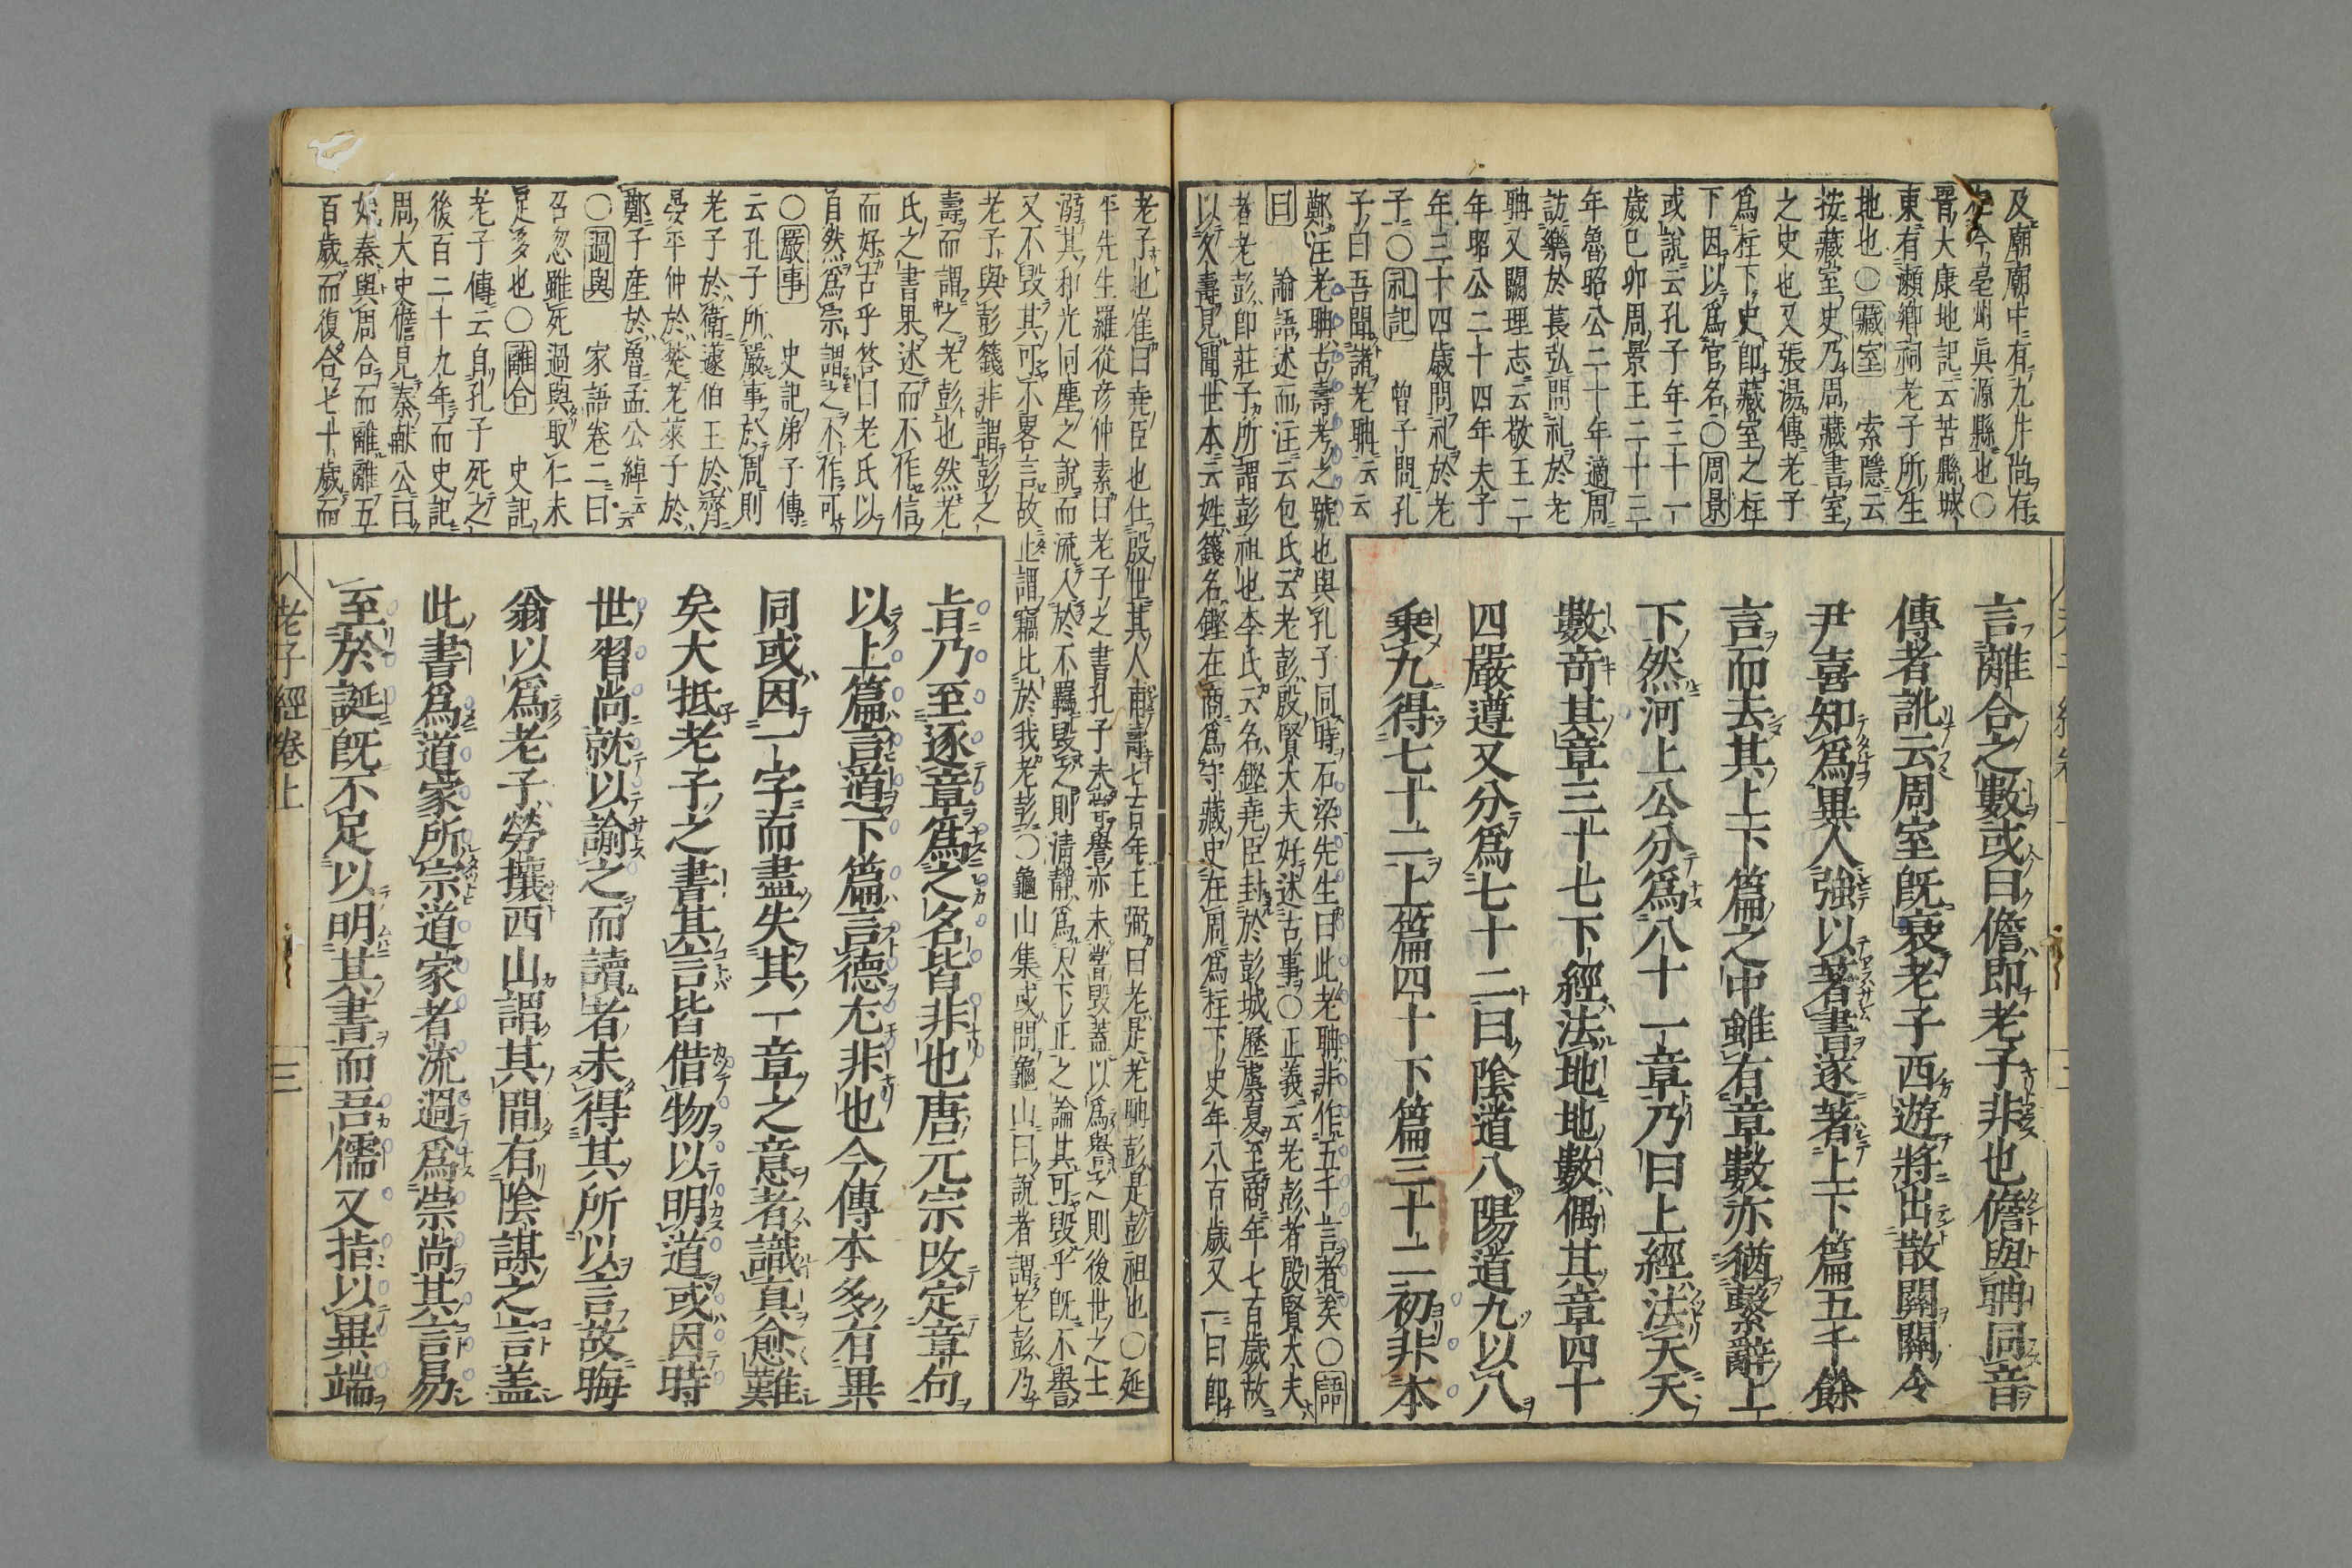 及廟廟中有九井尚存
在今亳州眞源縣也〇
晉大康地記云苦縣城
東有瀨鄉祠老子所生
地也〇藏室　索隱云
按藏室史乃周藏書室
之史也又張湯傳老子
爲柱下史即藏室之柱
下因以爲官名〇周景
或說云孔子年三十一
歲巳卯周景王二十三
年魯昭公二十年適周
訪樂於萇弘問礼於老
聃又闕理志云敬王二
年昭公二十四年夫子
年三十四歲問礼於老
子〇礼記　曾子問孔
子曰吾聞諸老聃云云
鄭注老聃古壽考之號也與孔子同時石梁先生曰此老聃非作五千言者矣〇語
曰　論語述而注云包氏云老彭殷賢大夫好述古事〇正義云老彭者殷賢大夫
者老彭即莊子所謂彭祖也李氏云名鏗堯臣封於彭城歷虞夏至商年七百歲故
以久壽見聞世本云姓籛名鏗在商爲守藏史在周爲柱下史年八百歲又一曰即
言離合之數或曰儋即老子非也儋與聃同音
傳者訛云周室旣衰老子西遊將出散關關令
尹喜知爲異人強以著書遂著上下篇五千餘
言而去其上下篇之中雖有章數亦猶繫辭上
下然河上公分爲八十一章乃曰上經法天天
數竒其章三十七下經法地地數偶其章四十
四嚴遵又分爲七十二曰陰道八陽道九以八
乘九得七十二上篇四十下篇三十二初非本
老子也崔曰堯臣也仕殷世其人甫壽七百年王弼曰老是老聃彭是彭祖也〇延
平先生羅從彦仲素曰老子之書孔子未嘗譽亦未嘗毀蓋以爲譽之則後世之士
溺其和光同塵之說而流入於不羈毀之則清靜爲天下正之論其可毀乎旣不譽
又不毀其可不畧言故止謂竊比於我老彭〇龜山集或問龜山曰說者謂老彭乃
老子與彭籛非謂彭之
壽而謂之老彭也然老
氏之書果述而不作信
而好古乎答曰老氏以
自然爲宗謂之不作可
〇嚴事　史記弟子傳
云孔子所嚴事於周則
老子於衛蘧伯玉於齊
晏平仲於楚老萊子於
鄭子產於魯孟公綽云云
〇過與　家語卷二曰
召忽雖死過與取仁未
足多也〇離合　史記
老子傳云自孔子死之
後百二十九年而史記
周大史儋見秦獻公曰
始秦與周合而離離五
百歲而復合七十歲而
㫖乃至逐章爲之名皆非也唐元宗改定章句
以上篇言道下篇言德尤非也今傳本多有異
同或因一字而盡失其一章之意者識真愈難
矣大抵老子之書其言皆借物以明道或因時
世習尚就以諭之而讀者未得其所以言故晦
翁以爲老子勞攘西山謂其間有陰謀之言盖
此書爲道家所宗道家者流過爲崇尚其言易
至於誕旣不足以明其書而吾儒又指以異端
老子經卷上
三